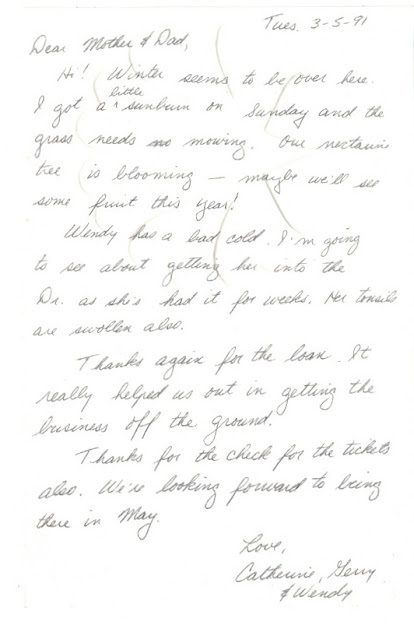 Tues. 3-5-91
Dear Mother & Dad,
Hi! Winter seems to be over here.
I got a little sunburn on Sunday and the
grass needs mowing. Our nectarine
tree is blooming — maybe we'll see
some fruit this year!
Wendy has a bad cold. I'm going
to see about getting her into the
Dr. as she's had it for weeks. Her tonsils
are swollen also.
Thanks again for the loan. It
really helped us out in getting the
business off the ground.
Thanks for the check for the tickets
also. We're looking forward to being
there in May.
Love,
Catherine, Gerry
& Wendy